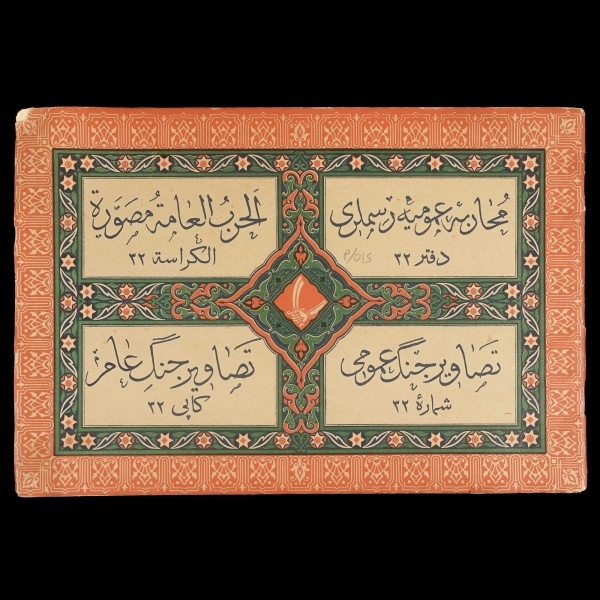 محاربه عمومیه رسملری
دفتر ٣٢
الحرب العامة مصوّرة
الكراسة ٣٢
تصاویر جنگ عمومی
شمارۀ ٣٢
تصاویر جنگ عام
کاپی ٣٢